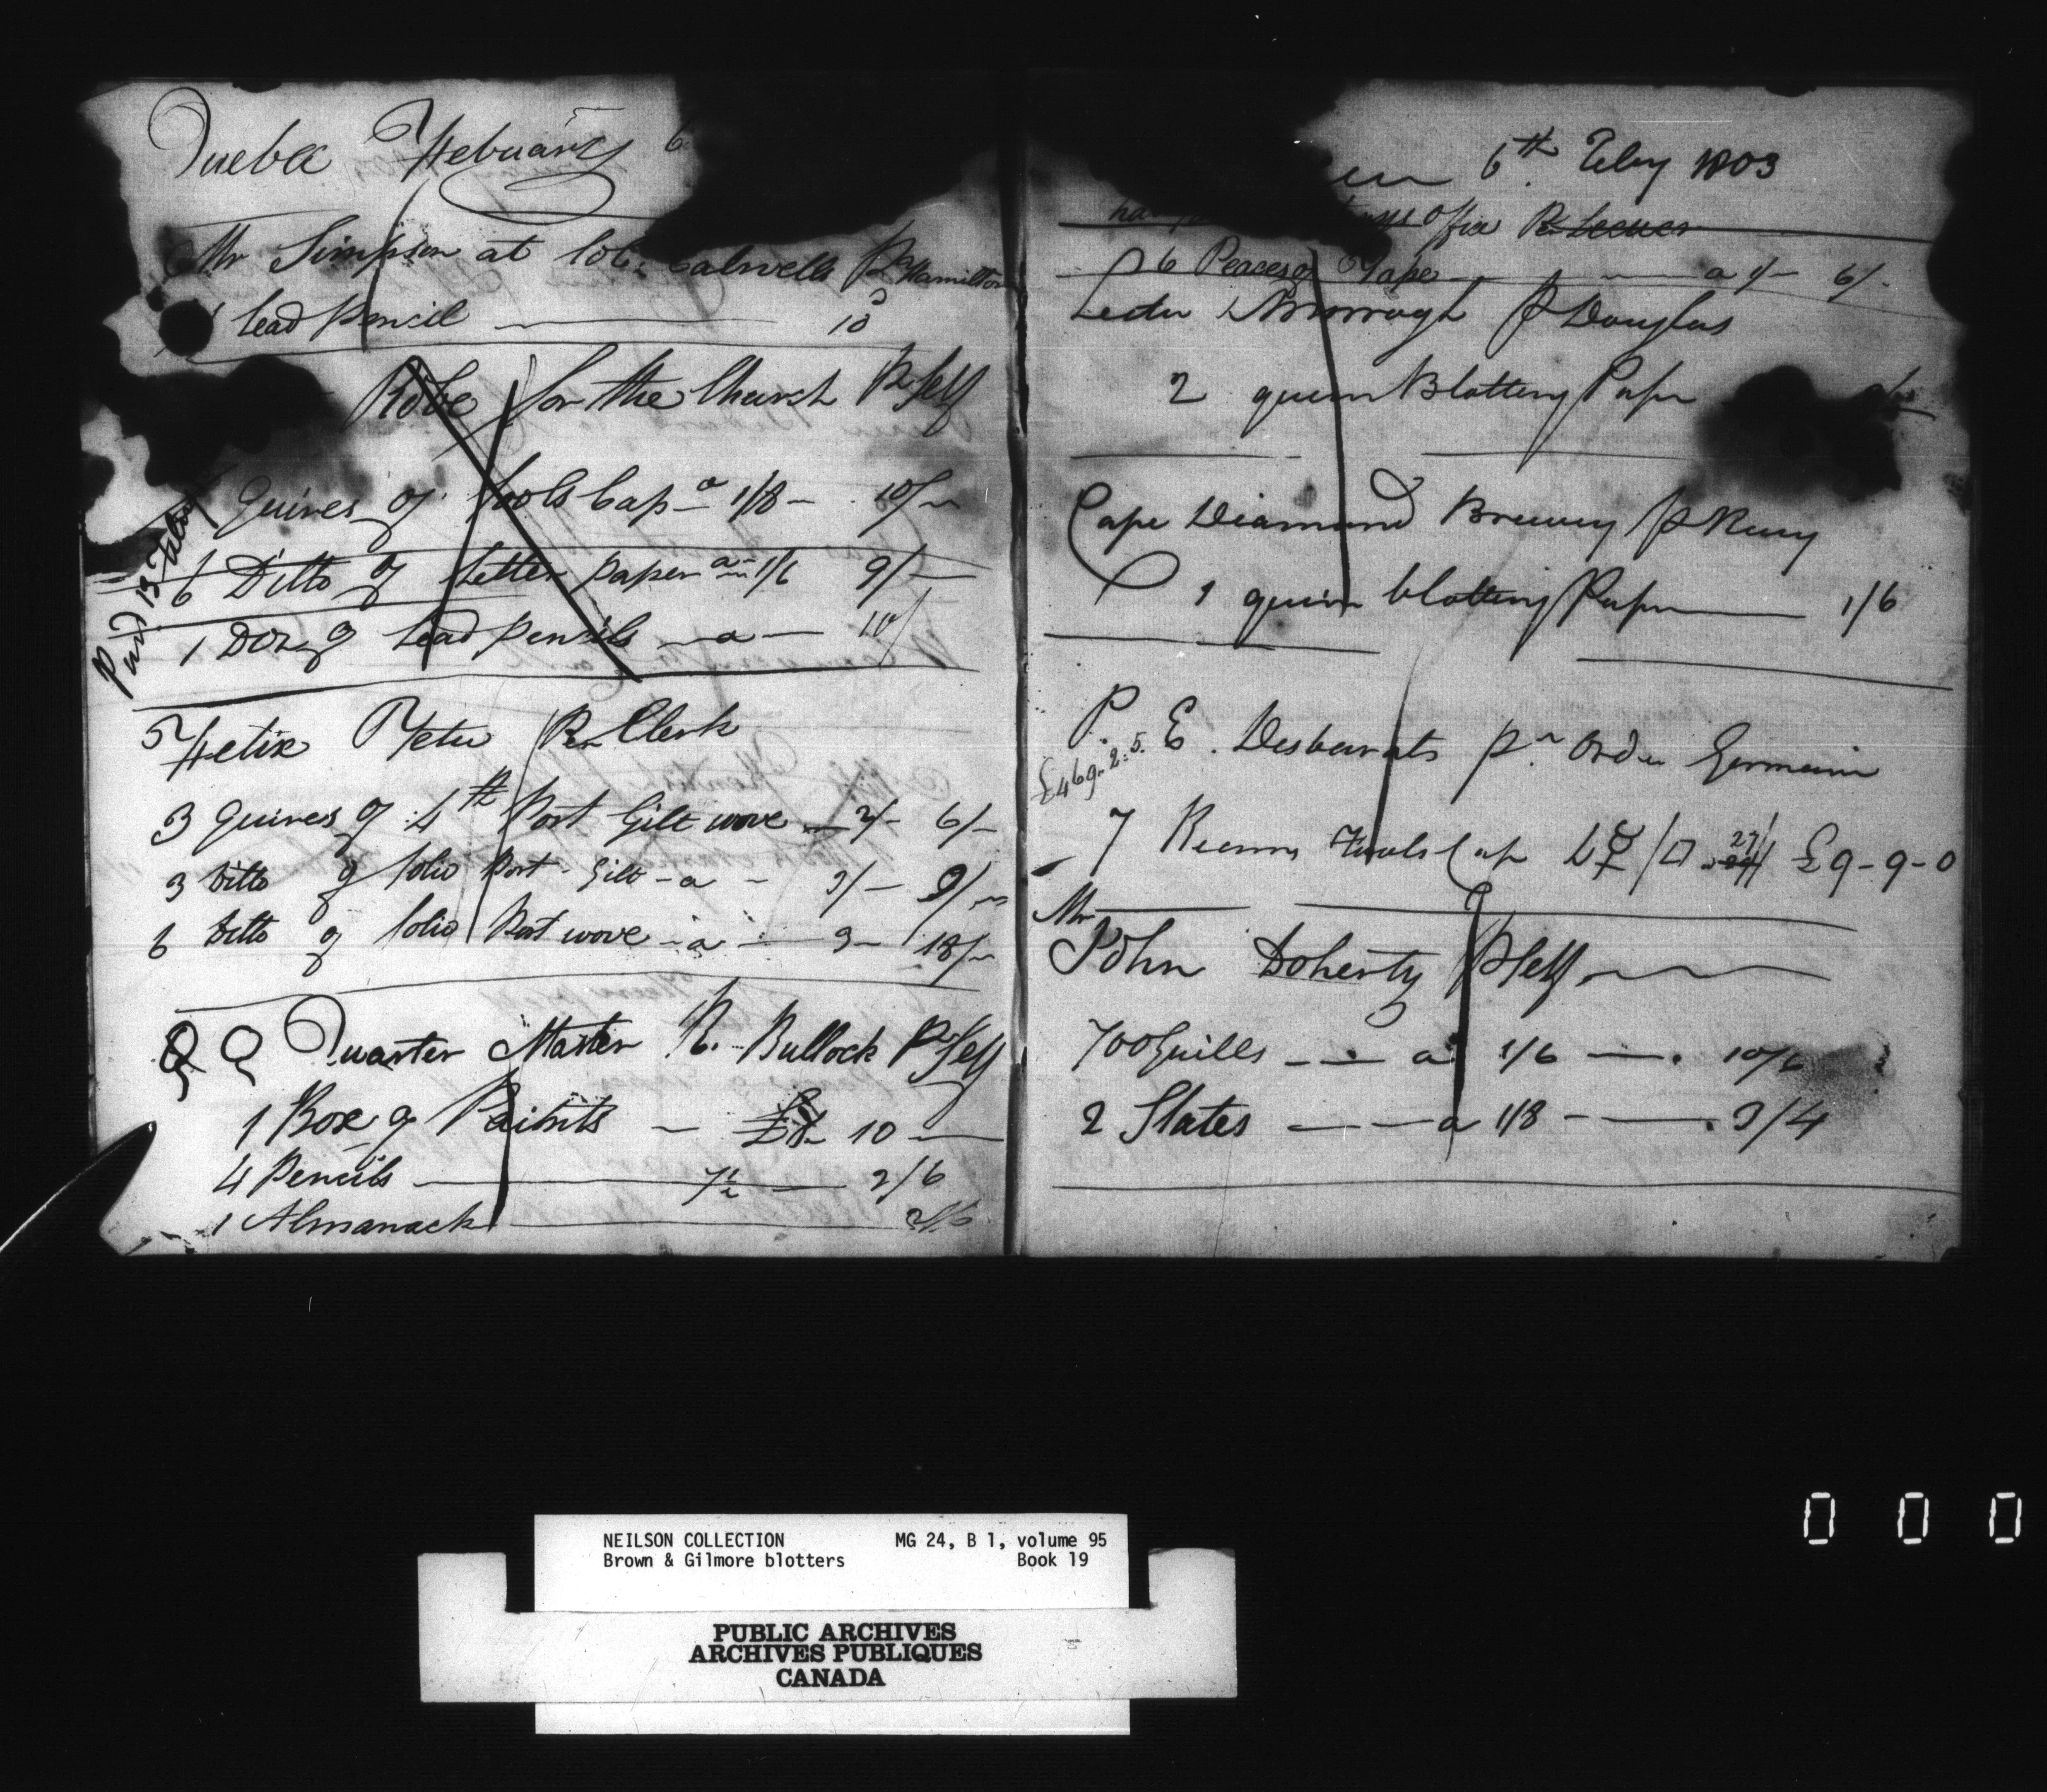 Quebec February 6
Mr Simpson at Col: Calwells Pr Hamilton
1 Lead Pencil 10d
Robe for the Church Pr Self
Quires of fools Cap a 1/8 10/
6 Ditto of Letter paper a 1/6 9/
1 Doz of Lead pencils a 10/
Paid 13 Febry
Felix Tetu Per Clerk
3 Quires of 4th Post Gilt wove 2/ 6/
3 Ditto of folio Post Gilt a 3/ 9/
6 Ditto of folio Post wove a 3 18/
Q Q Quarter Master R. Bullock Pr Self
1 Box of Paints 10
4 Pencils 7½ 2/6
1 Almanack
6th Feby 1803
Office Per
6 Peaces of Tape a 1/ 6/
Lester Morrogh P Douglas
2 quires Blotting Paper
Cape Diamond Brewery P
1 quire blotting Paper 1/6
P. E. Desbarats pr Order Germain
£469.2.5.
7 Reams Fools Cap 27/ £9-9-0
Mr
John Doherty P Self
700 Quills a 1/6 10/6
2 Slates a 1/8 3/4
NEILSON COLLECTION MG 24, B 1, volume 95
Brown & Gilmore blotters Book 19
PUBLIC ARCHIVES
ARCHIVES PUBLIQUES
CANADA
0 0 0